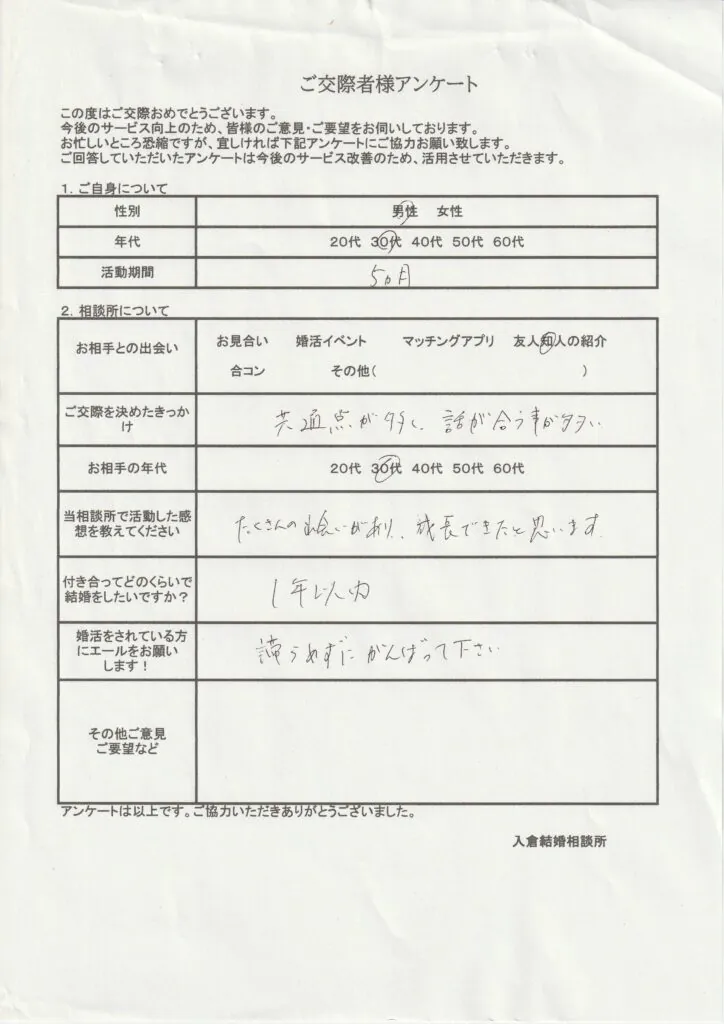 ご交際者様アンケート
この度はご交際おめでとうございます。
今後のサービス向上のため、皆様のご意見・ご要望をお伺いしております。
お忙しいところ恐縮ですが、宜しければ下記アンケートにご協力お願い致します。
ご回答していただいたアンケートは今後のサービス改善のため、活用させていただきます。
1. ご自身について
性別 男性 女性
年代 20代 30代 40代 50代 60代
活動期間 5ヵ月
2. 相談所について
お相手との出会い お見合い 婚活イベント マッチングアプリ 友人知人の紹介
合コン その他( )
ご交際を決めたきっか
け 共通点が多く、話が合う事が多い
お相手の年代 20代 30代 40代 50代 60代
当相談所で活動した感
想を教えてください たくさんの出会いがあり、成長できたと思います。
付き合ってどのくらいで
結婚をしたいですか? 1年以内
婚活をされている方
にエールをお願い
します! 諦らめずにがんばって下さい
その他ご意見
ご要望など
アンケートは以上です。ご協力いただきありがとうございました。
入倉結婚相談所